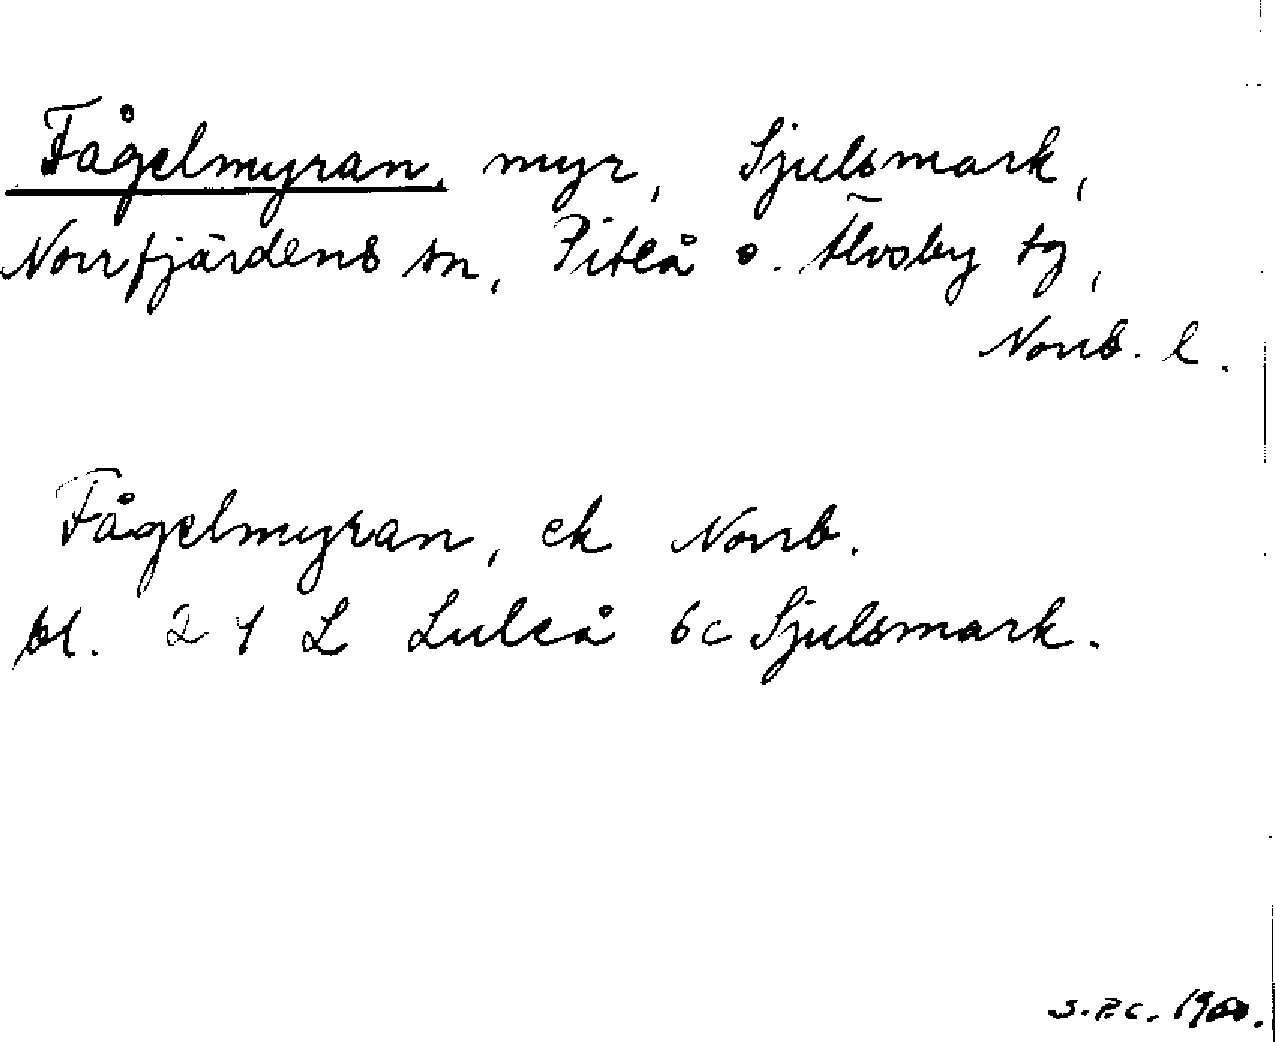 Fågelmyran, myr, Sjulsmark,
Norrfjärdens sn, Piteå o. Älvsby tg,
Norrb. l.
Fågelmyran, ek Norrb.
bl. 24 L Luleå 6c Sjulsmark.
S.P.C. 1960.